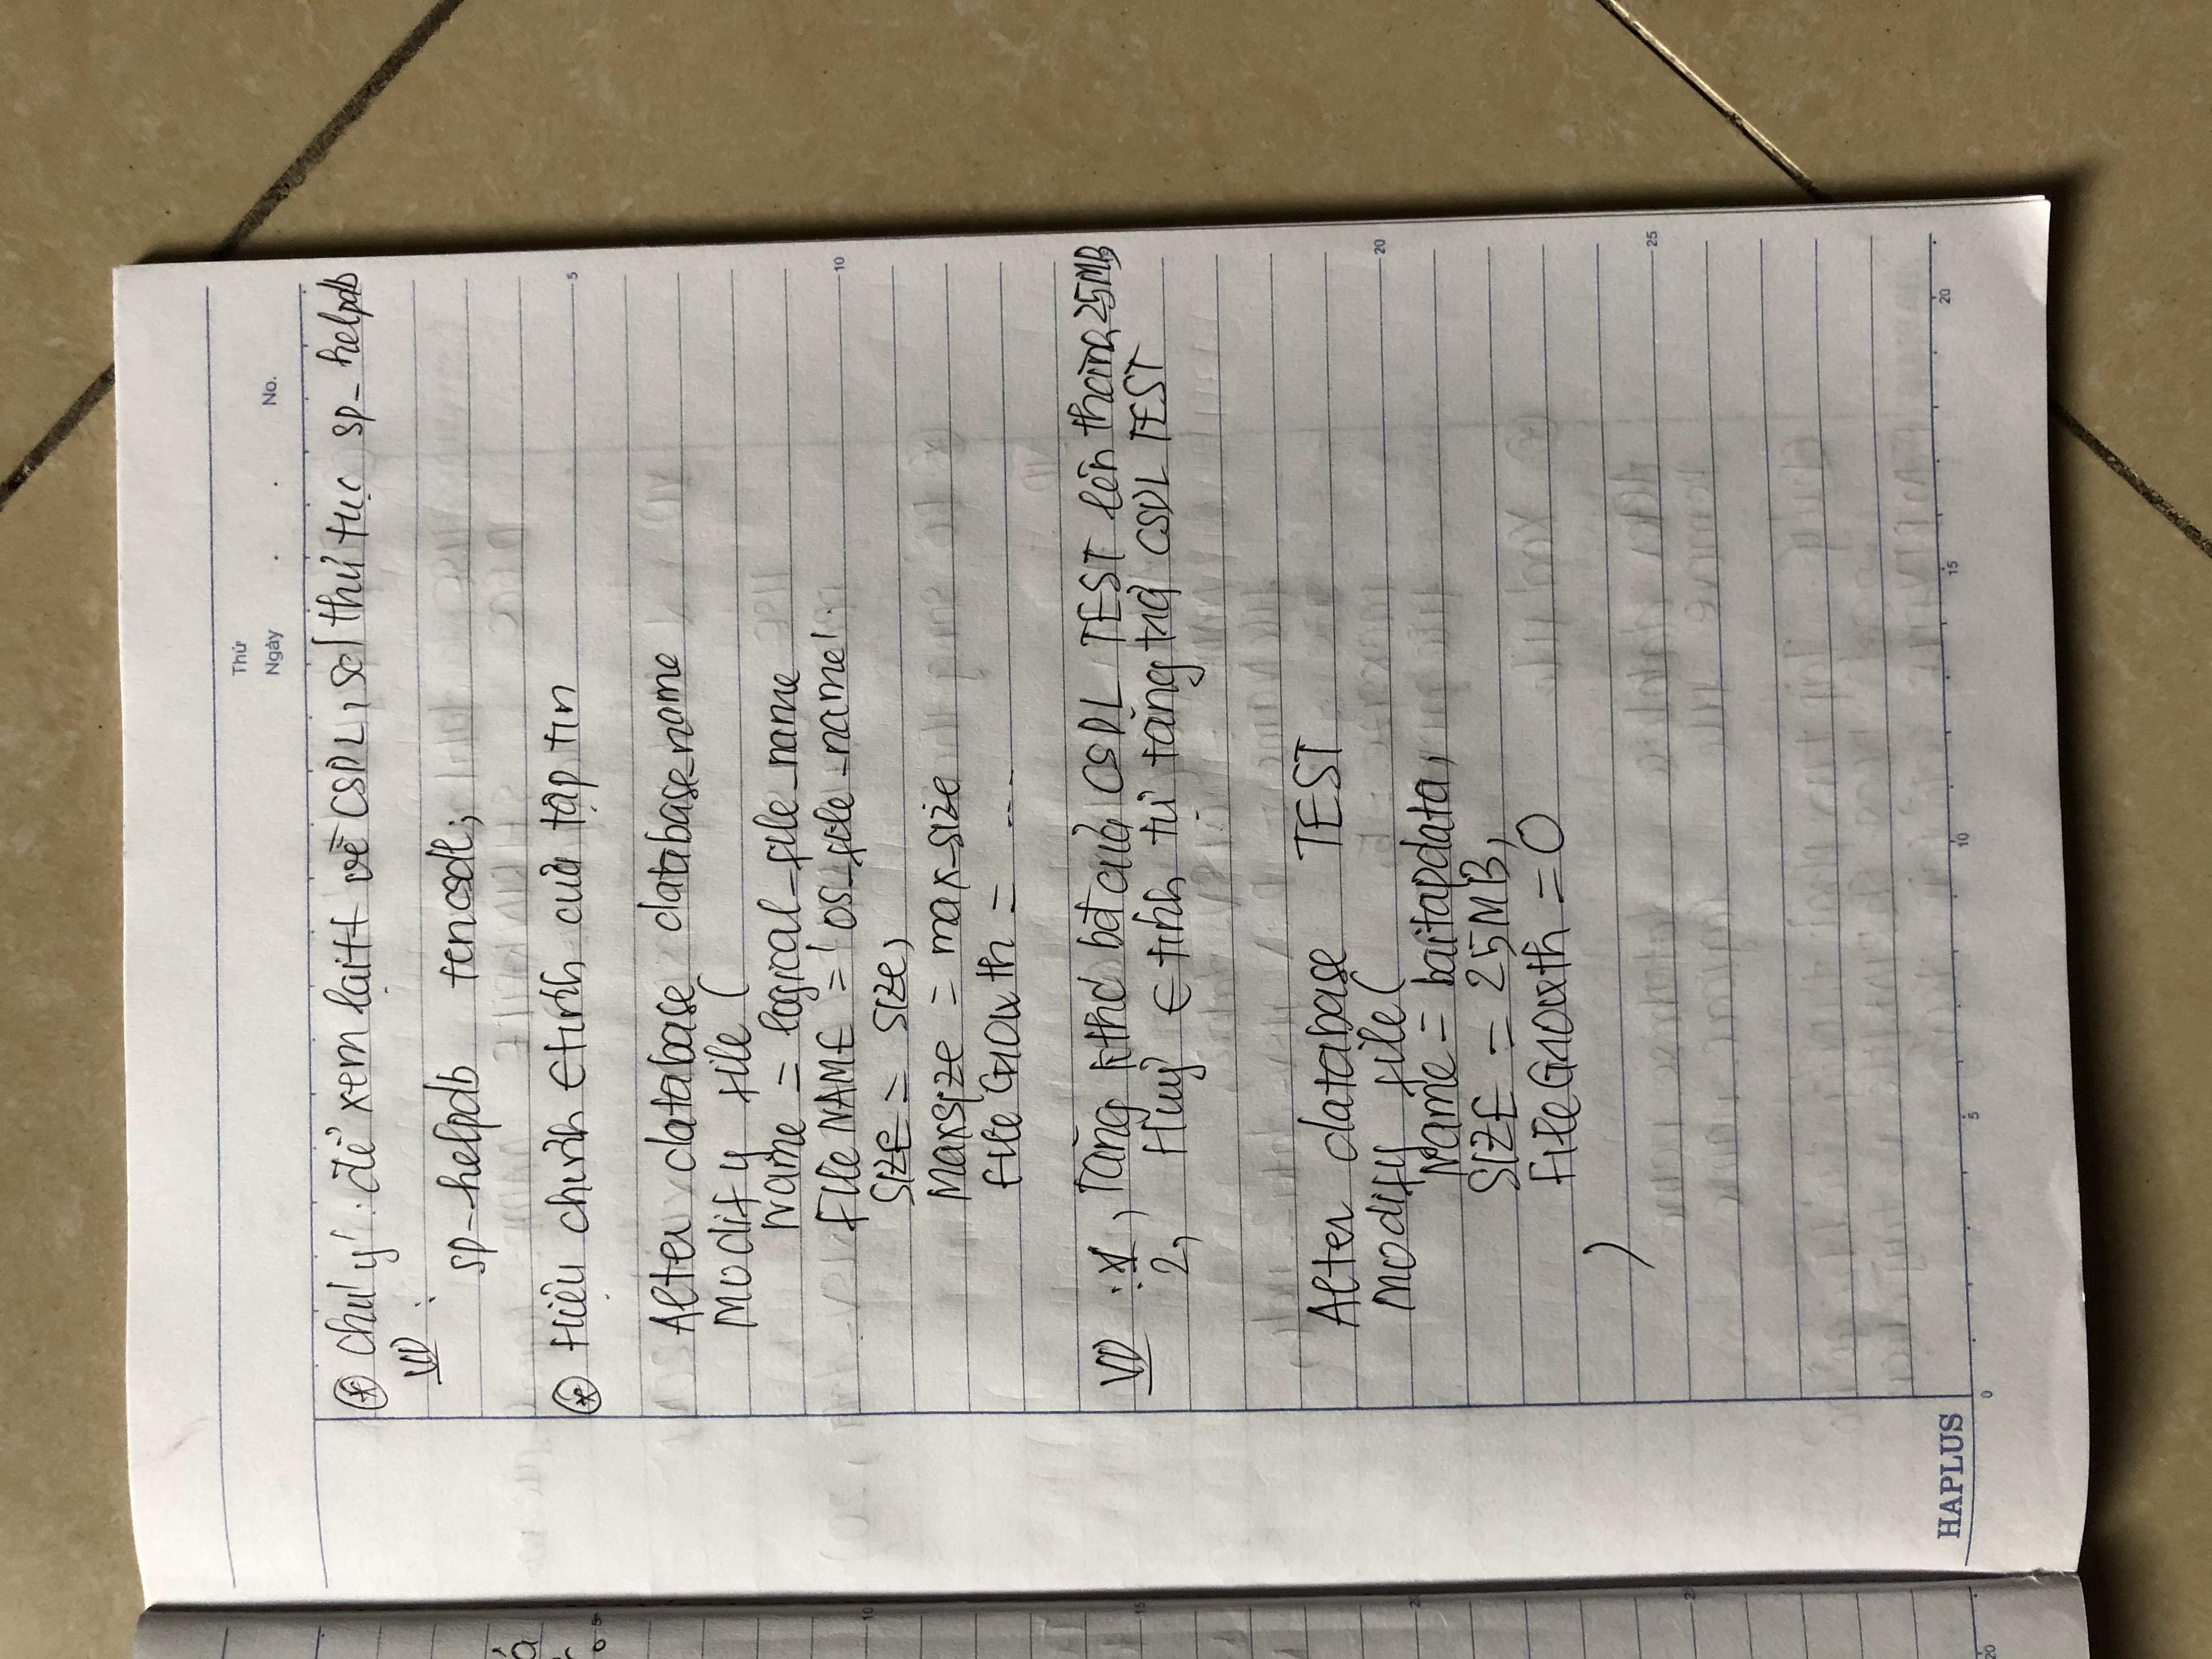 Thứ
Ngày . . No.
* Chú ý: để xem lại tt về CSDL, sd thủ tục sp_helpdb
VD :
sp_helpdb tencsdl;
* Hiệu chỉnh Єtính của tập tin
Alter database database_name
Modify file (
Name = logical_file_name
FileNAME = 'os_file_name'
SIZE = size,
Maxsize = max_size
fileGrowth = ...
VD : 1, Tăng kthc bđ của CSDL TEST lên thành 25MB
2, Huỷ Єtính tự tăng trg CSDL TEST
Alter database TEST
Modify file (
Name = baitapdata,
SIZE = 25MB,
FileGrowth = 0
)
HAPLUS